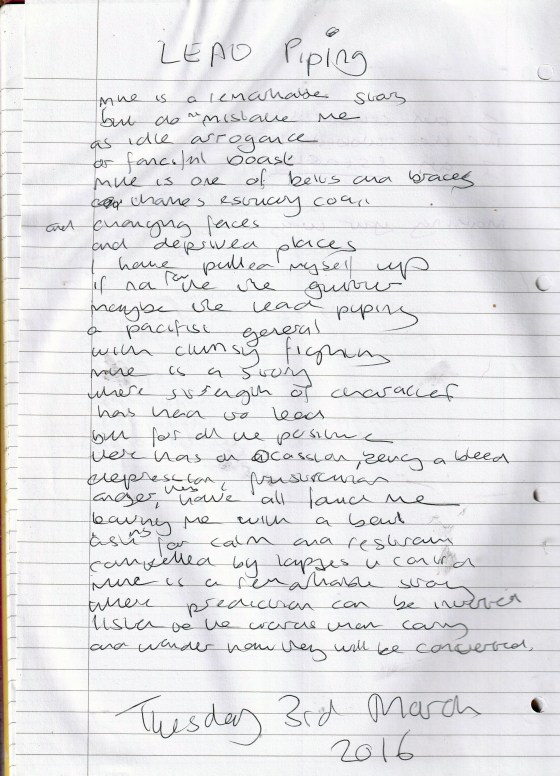 LEAD Piping
mine is a remarkable story
but do not mistake me
as idle arrogance
or fanciful boast
mine is one of belts and braces
thames estuary coast
and changing faces
and deprived places
I have pulled myself up
if not the gutter
maybe the lead piping
a pacifist general
with clumsy fighting
mine is a story
where strength of character
has had to lead
but for all the positive
there has on occassion, being a bleed
depression, frustration
anger, have all faced me
leaving me with a
asking for calm and restraint
cancelled by lapses in control
mine is a remarkable story
where prediction can be inverted
listen to the words that carry
and wonder how they will be converted.
Tuesday 3rd March
2016